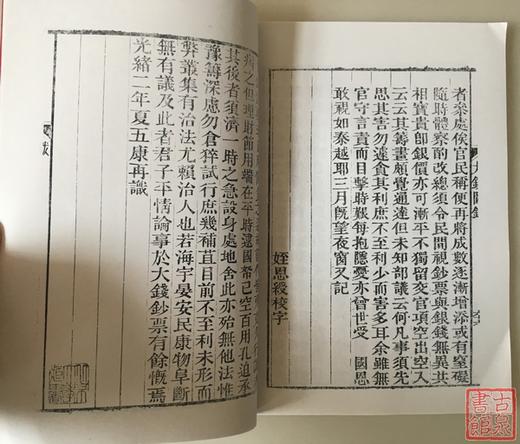 大錢圖錄
者奏處俟官民稱便再將成數逐漸增添或有窒礙
隨時體察酌改總須令民間視鈔票與銀錢無異共
相寶貴卽銀價亦可漸平不獨留交官項空出
云云其籌畫頗覺通達但未知部議云何凡事須先
思其害勿遽食其利庶不至利少而害多耳余雖無
官守言責而目擊時艱每抱隱憂亦曾世受 國恩
敢視如秦越耶三月旣望夜窗又記
姪恩綬校字
病之但理財節用端在平時逮國帑已空百用孔迫承
其後者須濟一時之急設身處地舍此亦殆無他法惟
豫籌深慮勿倉猝試行庶幾補苴目前不至利未形而
弊叢集有治法尤賴治人也若海宇晏安民康物阜斷
無有議及此者君子平情論事於大錢鈔票有餘慨焉
光緒二年夏五康再識
古泉書館